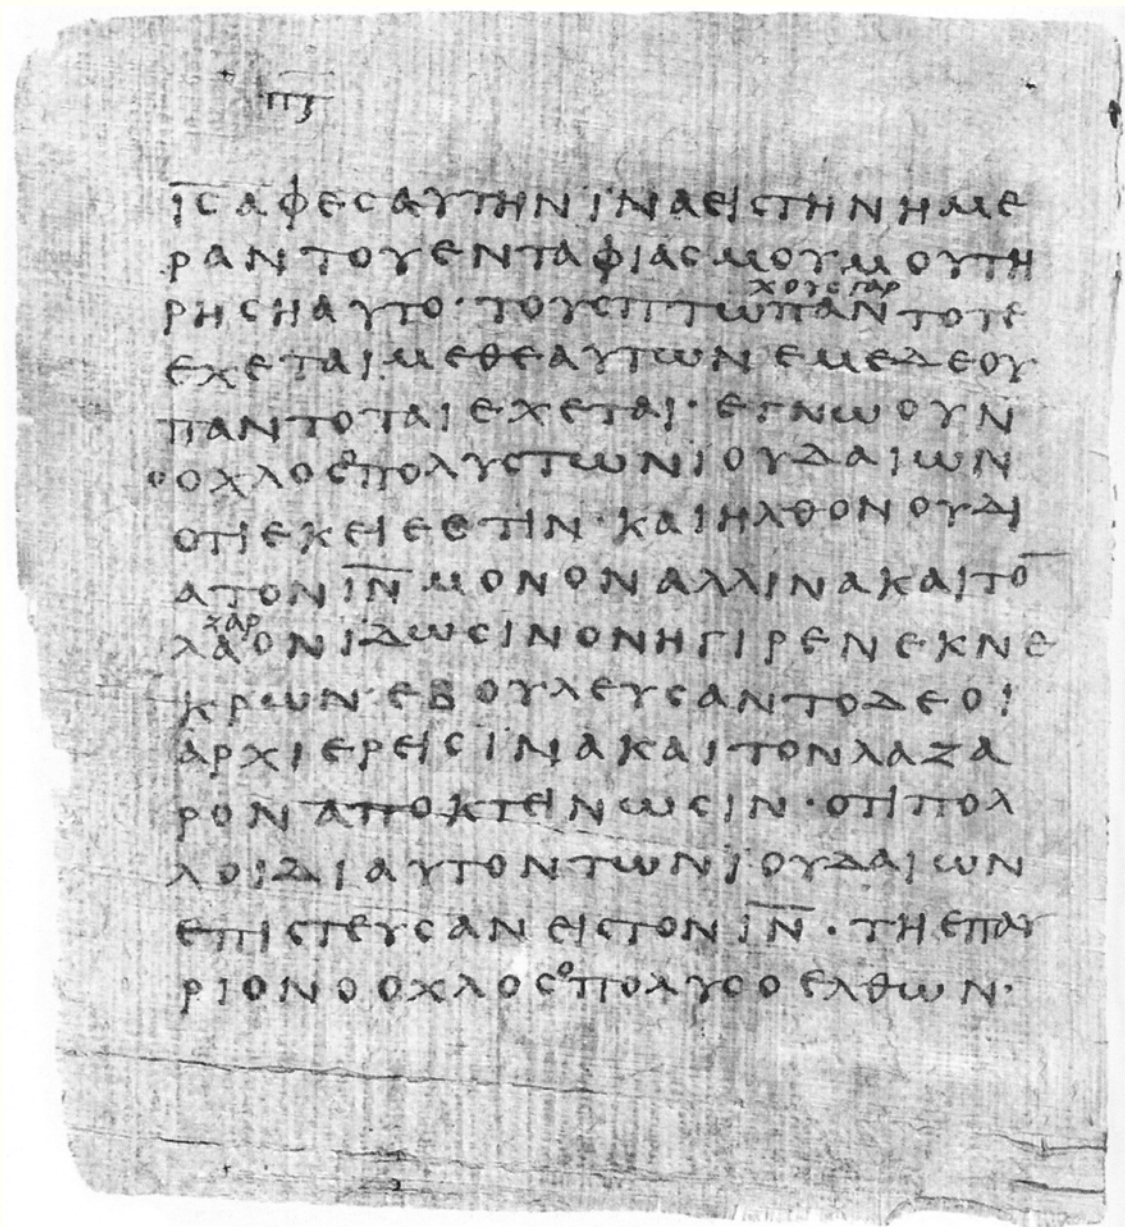 ῙC̅ΑΦΕCΑΥΤΗΝΪΝΑΕΙCΤΗΝΗΜΕ
ΡΑΝΤΟΥΕΝΤΑΦΙΑCΜΟΥΜΟΥΤΗ
ΧΟΥCΓΑΡ
ΡΗCΗΑΥΤΟ·ΤΟΥCΠΤΩΠΑΝΤΟΤΕ
ΕΧΕΤΑΙΜΕΘΕΑΥΤΩΝΕΜΕΔΕΟΥ
ΠΑΝΤΟΤΑΙΕΧΕΤΑΙ·ΕΓΝΩΟΥΝ
ΟΟΧΛΟCΟΠΟΛΥCΤΩΝΙΟΥΔΑΙΩΝ
ΟΤΙΕΚΕΙΕCΤΙΝ·ΚΑΙΗΛΘΟΝΟΥΔΙ
ΑΤΟΝῙΝ̅ΜΟΝΟΝΑΛΛΙΝΑΚΑΙΤΟ̅
ΖΑΡ
ΛΑΟΝΪΔΩCΙΝΟΝΗΓΙΡΕΝΕΚΝΕ
ΚΡΩΝ·ΕΒΟΥΛΕΥCΑΝΤΟΔΕΟΙ
ΑΡΧΙΕΡΕΙCΪΝΑΚΑΙΤΟΝΛΑΖΑ
ΡΟΝΑΠΟΚΤΕΙΝΩCΙΝ·ΟΤΙΠΟΛ
ΛΟΙΔΙΑΥΤΟΝΤΩΝΙΟΥΔΑΙΩΝ
ΕΠΙCΤΕΥCΑΝΕΙCΤΟΝῙΝ̅·ΤΗΕΠΑΥ
ΡΙΟΝΟΟΧΛΟCΟΠΟΛΥCΟΕΛΘΩΝ·